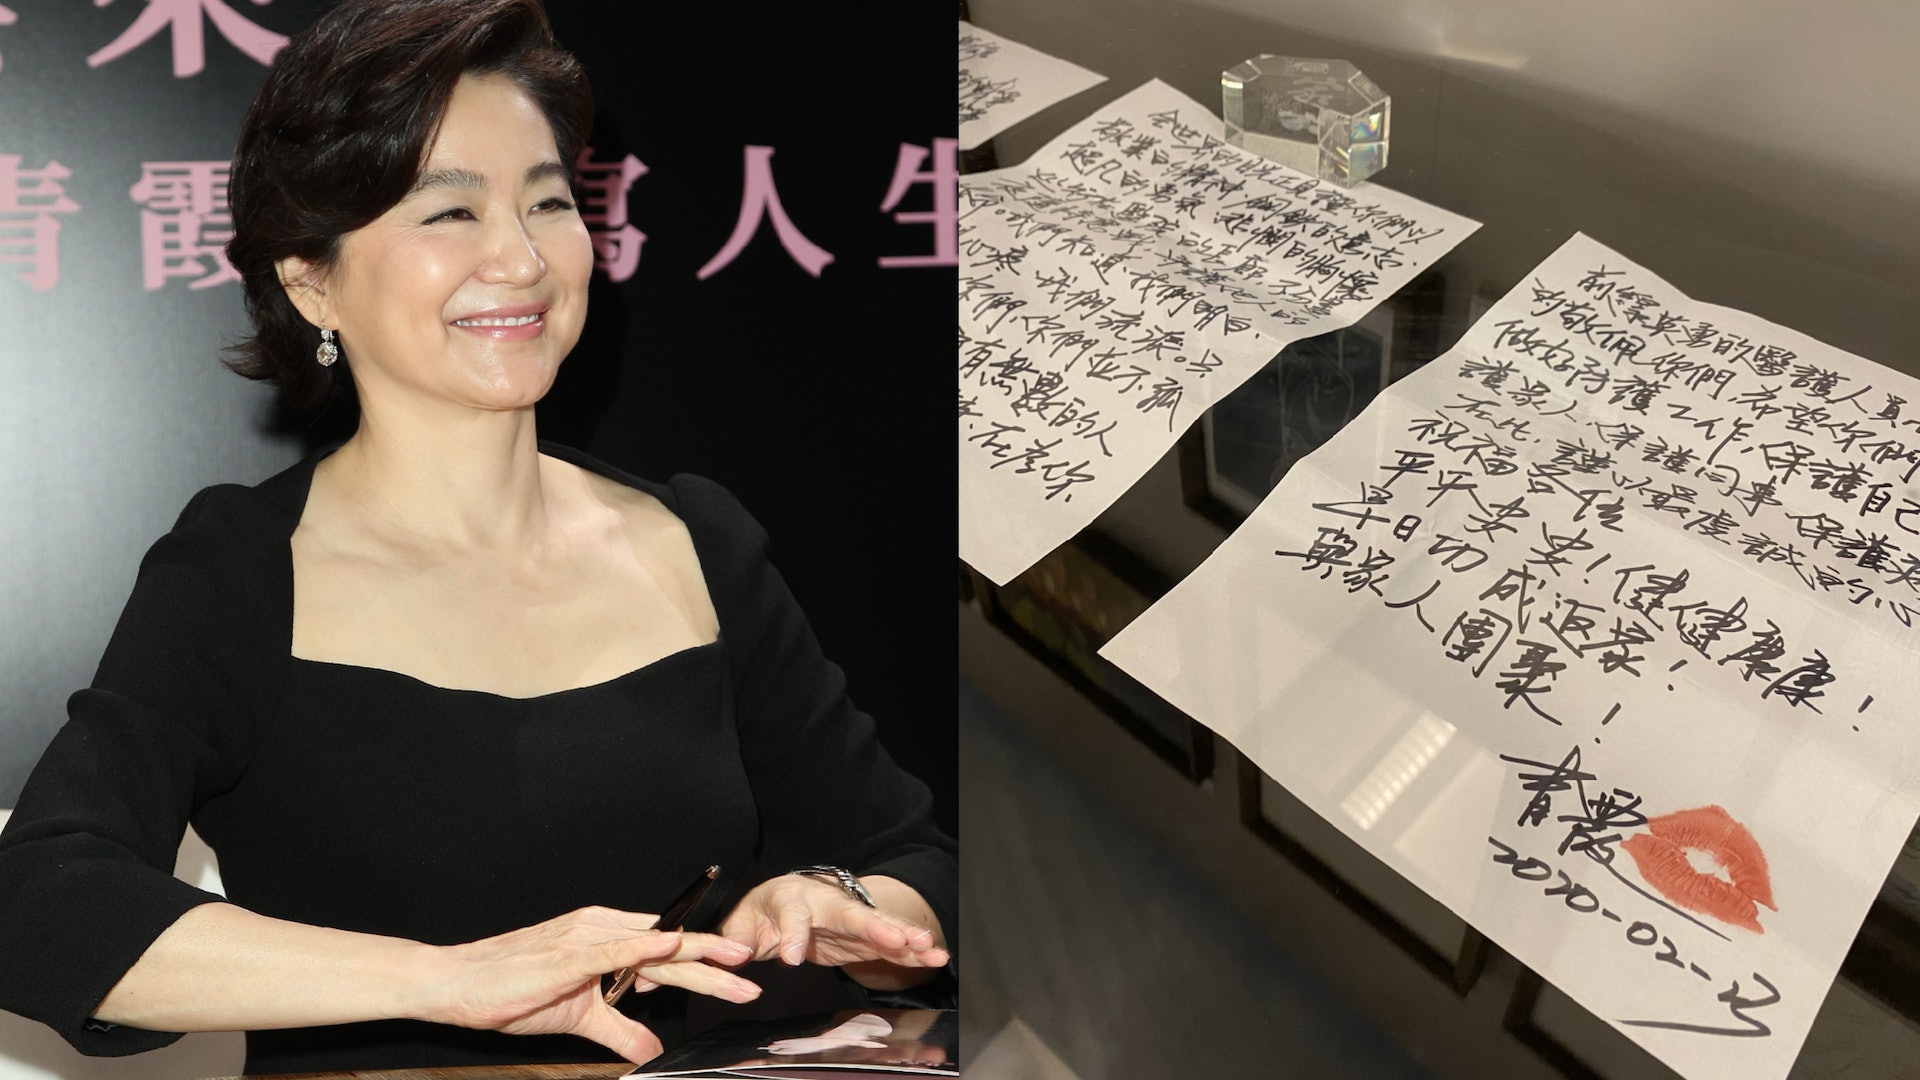 青霞 寫人生
全世界的目光正見證你們以
敬業的精神、鋼鐵的意志、
超凡的勇氣、悲憫的胸懷
命。我們知道、我們明白、
心疼、我們流淚。只
你們、你們並不孤
有無數的人
在為你
前線英勇的醫護人員
敬佩你們,希望你們
做好防護工作,保護自己
護家人、保護同事、保護
在此,謹以最虔誠的心
祝福各位
平平安安!健健康康!
早日功成返家!
與家人團聚!
青霞
2020-02-